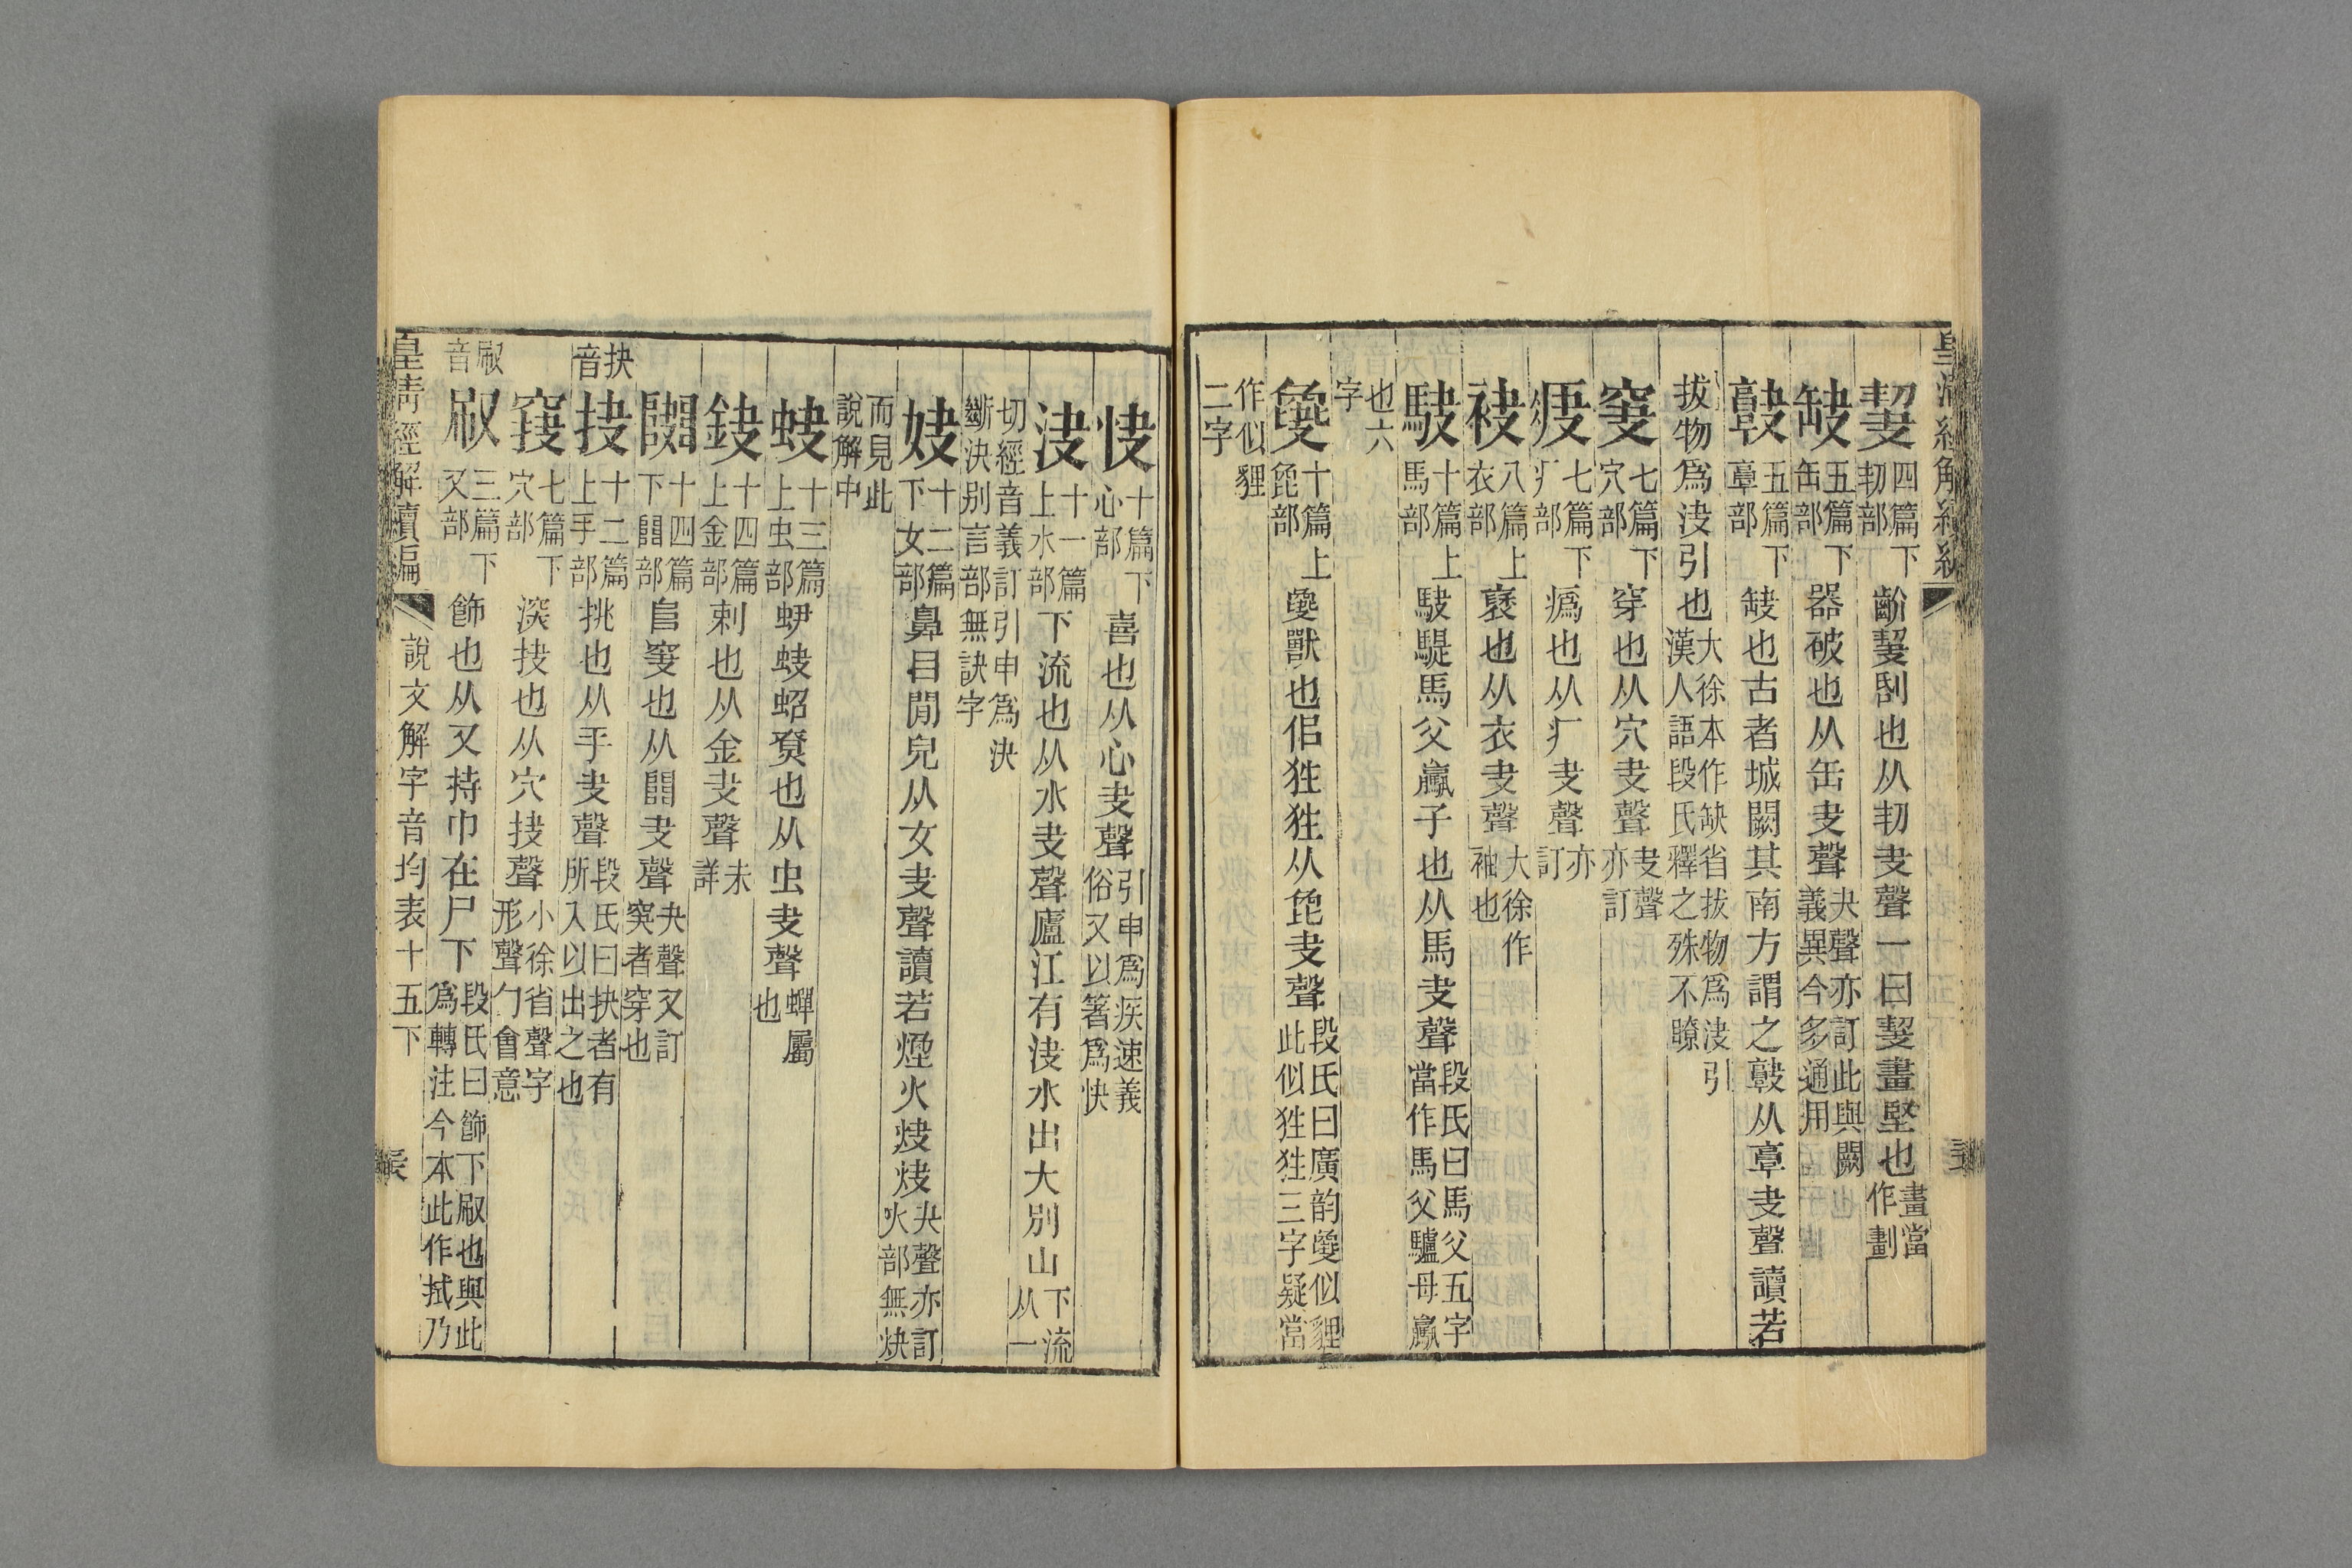 四篇下㓞部 齘㓤刮也从㓞夬聲一曰㓤畫堅也 畫當作劃
缺 五篇下缶部 器破也从缶夬聲 夬聲亦訂此與闕義異今多通用
五篇下部 缺也古者城闕其南方謂之䥗从夬聲讀若
拔物爲決引也 大徐本作缺省拔物爲決引漢人語段氏釋之殊不瞭
穾 七篇下穴部 穿也从穴夬聲 夬聲亦訂
疦 七篇下疒部 瘑也从疒夬聲 亦訂
袂 八篇上衣部 褎也从衣夬聲 大徐作袖也
駃 十篇上馬部 駃騠馬父臝子也从馬夬聲 段氏曰馬父五字當作馬父驢母臝
也六字
㲋部 十篇上 獸也佀狌狌从㲋夬聲 段氏曰廣韵似貍此似狌狌三字疑當
作似貍二字
快 十篇下心部 喜也从心夬聲 引申爲疾速義俗又以箸爲快
決 十一篇上水部 下流也从水夬聲廬江有決水出大別山 下流从一
切經音義訂引申爲決斷決別言部無訣字
妜 十二篇下女部 鼻目閒皃从女夬聲讀若煙火炔炔 夬聲亦訂火部無炔
而見此說解中
蚗 十三篇上虫部 蛜蚗蛁蟟也从虫夬聲 蟬屬也
鈌 十四篇上金部 刺也从金夬聲 未詳
十四篇下部 𨸏突也从夬聲 夬聲又訂突者穿也
抉音 抉 十二篇上手部 挑也从手夬聲 段氏曰抉者有所入以出之也
七篇下穴部 深抉也从穴抉聲 小徐省聲字形聲勹會意
㕞音 㕞 三篇下又部 飾也从又持巾在尸下 段氏曰飾下㕞也與此爲轉注今本此作拭乃
皇清經解續編 說文解字音均表十五下